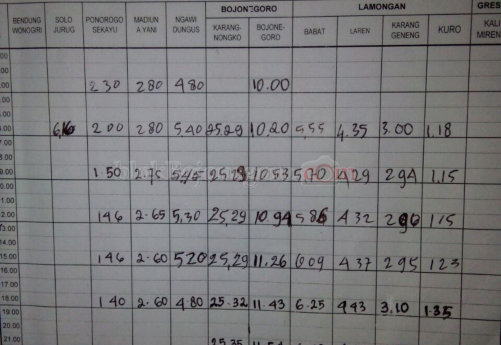 BOJONEGORO LAMONGAN GRES
BENDUNG WONOGIRI SOLO JURUG PONOROGO SEKAYU MADIUN A YANI NGAWI DUNGUS KARANG-NONGKO BOJONE-GORO BABAT LAREN KARANG GENENG KURO KALI MIREN
230 280 480 10.00
616 200 280 5,40 25.29 10,20 5,55 4.35 3.00 1.18
1.50 2.75 5,45 25,29 10,53 5,70 4,29 294 1,15
12.00 146 2.65 5,30 25,29 10.94 5,86 4 32 296 1,15
13.00
15.00 146 2.60 520 25,29 11.26 609 4 37 295 1 23
16.00
18.00 1 40 2.60 4.80 25.32 11.43 6.25 443 3.10 1.35
19.00
20.00
21.00 25.35